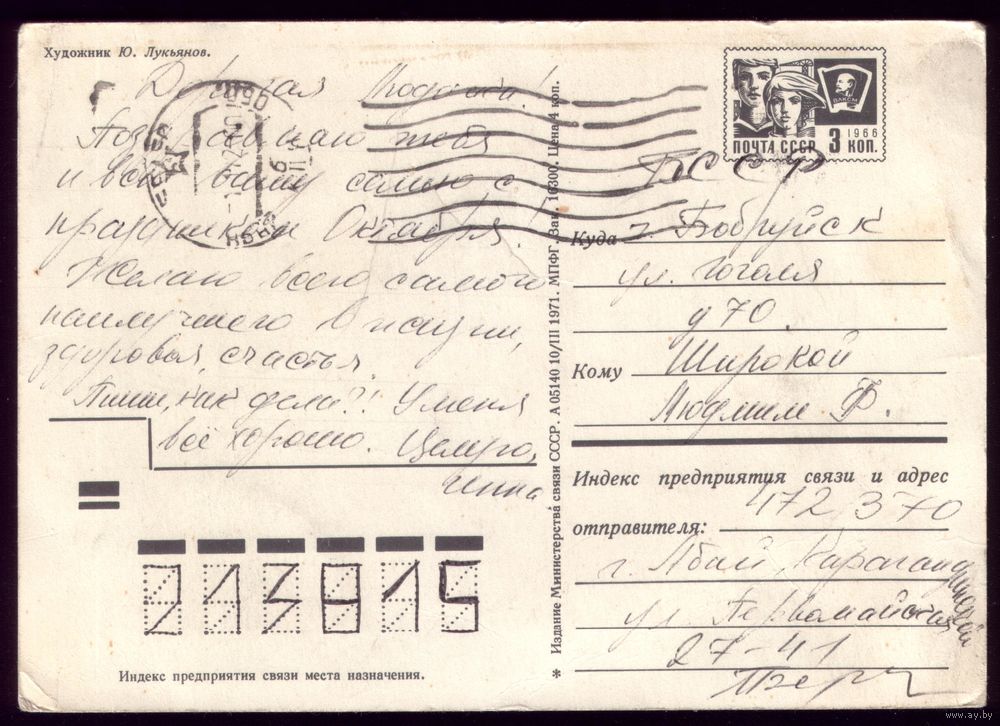 Художник Ю. Лукьянов.
Дорогая
Поздравляю тебя
и всю вашу семью с
праздником Октября!
Желаю всего самого
наилучшего в жизни,
здоровья, счастья.
Пиши, как дела?! У меня
всё хорошо. Целую,
Инна
ПОЧТА СССР
ВЛКСМ
1966
3 КОП.
БССР
Куда г. Бобруйск
ул. Гоголя
д 70.
Кому Широкой
Людмиле Ф.
Индекс предприятия связи и адрес
отправителя: 472370
г. Абай, Карагандинской
ул. Первомайская
27-41
213815
Индекс предприятия связи места назначения.
* Издание Министерства связи СССР. А 05140 10/III 1971. МПФГ. Зак. 10300. Цена 4 коп.
www.ay.by